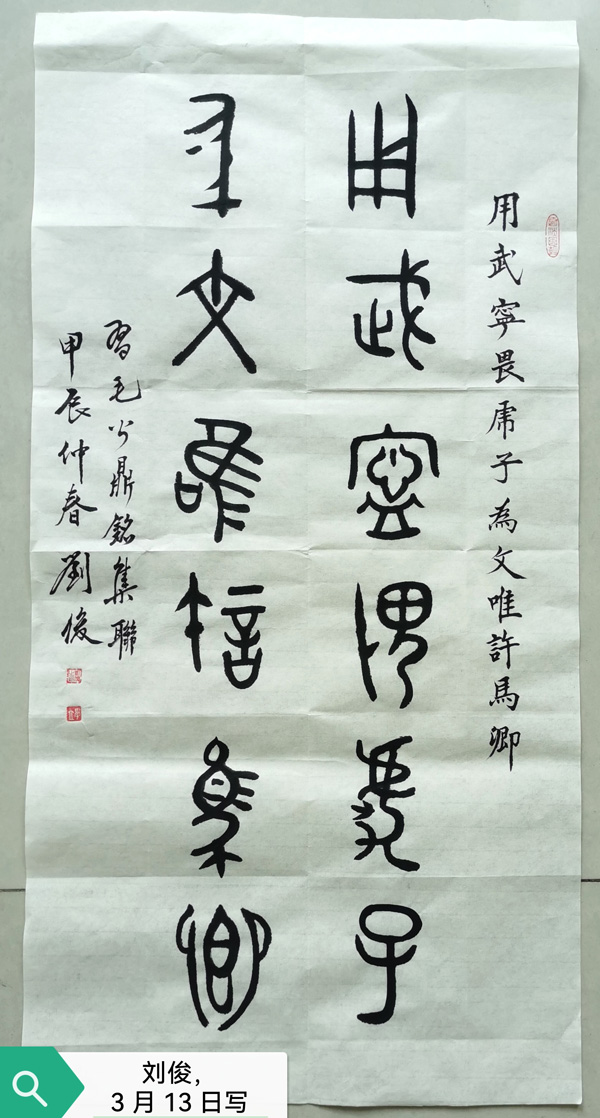 用武寧畏虎子為文唯許馬卿
用武寧畏虎子
為文唯許馬卿
習毛公鼎銘集聯
甲辰仲春劉俊
刘俊，
3月13日写